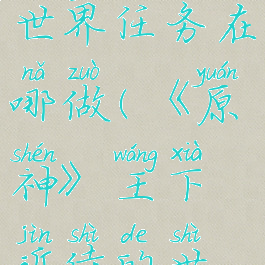 世界任务在
nǎ zuò yuán
哪做(《原
shén wáng xià
神》 王下
jìn shì de shì
近侍的世